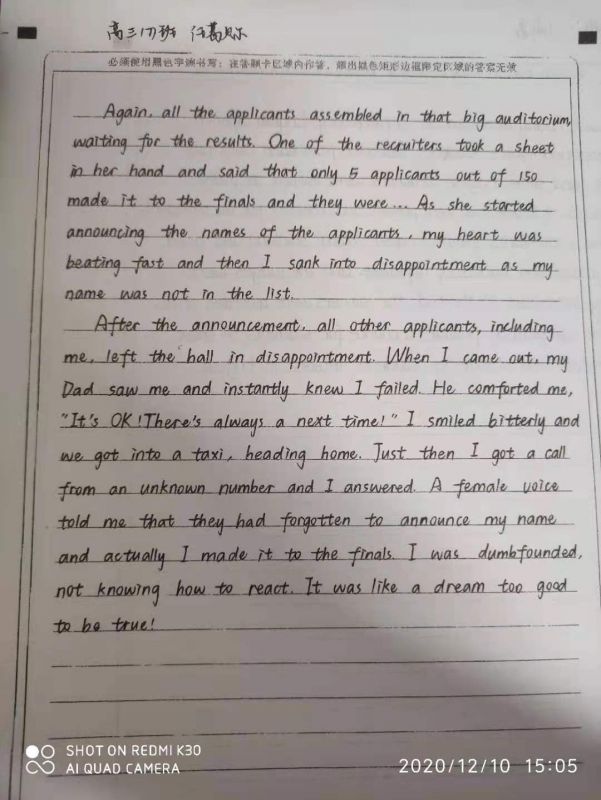 高三17班 任葛际
必须使用黑色字迹书写；在答题卡区域内作答，超出黑色矩形边框限定区域的答案无效
Again, all the applicants assembled in that big auditorium,
waiting for the results. One of the recruiters took a sheet
in her hand and said that only 5 applicants out of 150
made it to the finals and they were... As she started
announcing the names of the applicants, my heart was
beating fast and then I sank into disappointment as my
name was not in the list.
After the announcement, all other applicants, including
me, left the hall in disappointment. When I came out, my
Dad saw me and instantly knew I failed. He comforted me,
"It's OK! There's always a next time!" I smiled bitterly and
we got into a taxi, heading home. Just then I got a call
from an unknown number and I answered. A female voice
told me that they had forgotten to announce my name
and actually I made it to the finals. I was dumbfounded,
not knowing how to react. It was like a dream too good
to be true!
SHOT ON REDMI K30
AI QUAD CAMERA
2020/12/10 15:05